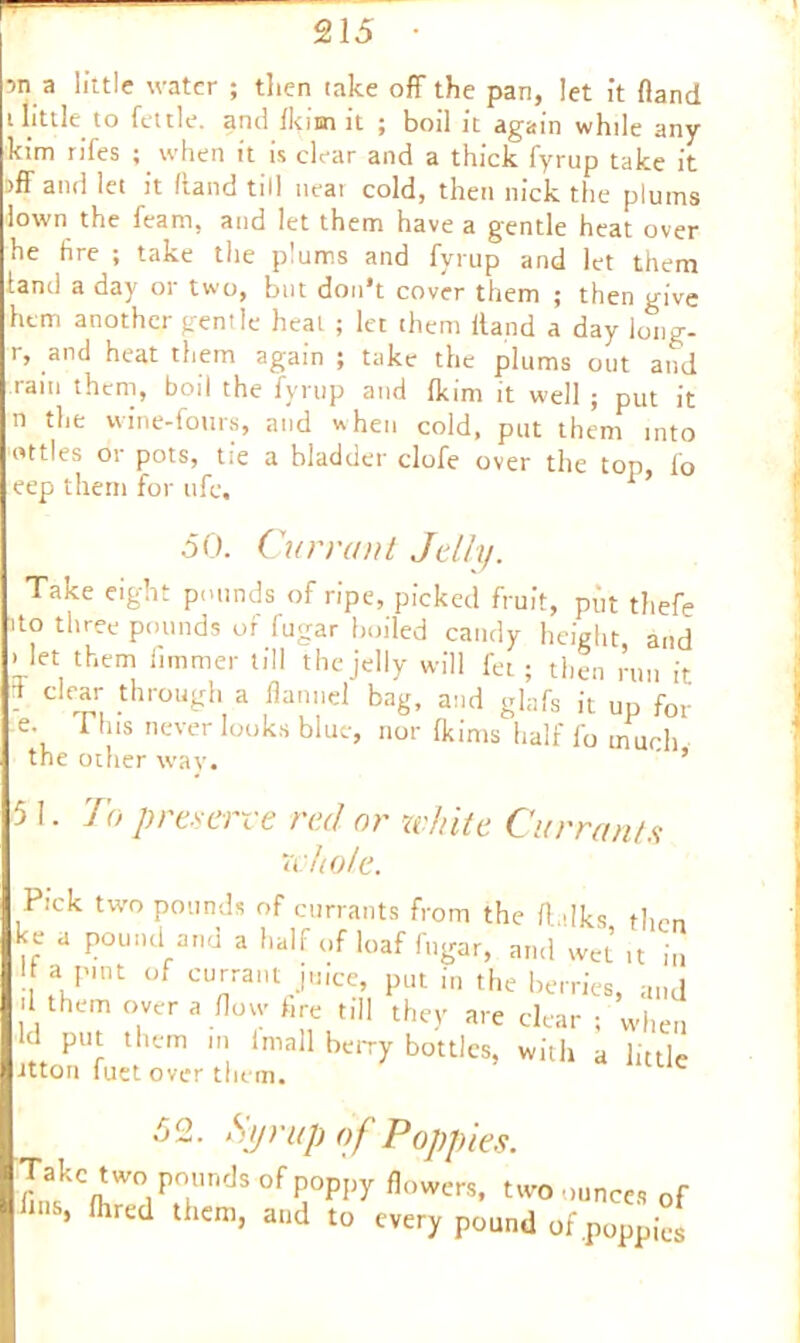 215
on a little water ; then take off the pan, let it ſtand
a little to ſettle. and ſkim it ; boil it again while any
ſkim riſes ; when it is clear and a thick ſyrup take it
off and let it ſtand till near cold, then nick the plums
down the ſeam, and let them have a gentle heat over
he fire ; take the plums and ſyrup and let them
ſtand a day or two, but don't cover them ; then give
hem another gentle heat ; let them ſtand a day long-
r, and heat them again ; take the plums out and
rain them, boil the ſyrup and ſkim it well ; put it
n the wine-ſours, and when cold, put them into
ottles or pots, tie a bladder cloſe over the top, ſo
eep them for uſe.
50. Currant Jelly.
Take eight pounds of ripe, picked fruit, put theſe
nto three pounds of ſugar boiled candy height, and
let them ſimmer till the jelly will ſet ; then run it
ff clear through a flannel bag, and glaſs it up for
e. This never looks blue, nor ſkims half ſo much,
the other way.
51. To preserve red or white Currants
whole.
Pick two pounds of currants from the ſtalks, then
ke a pound and a half of loaf ſugar, and wet it in
lf a pint of currant juice, put in the berries, and
il them over a ſlow fire till they are clear ; when
ld put them in ſmall berry bottles, with a little
utton ſuet over them.
52. Syrup of Poppies.
Take two pounds of poppy flowers, two ounces of
ſins, ſhred them, and to every pound of poppies